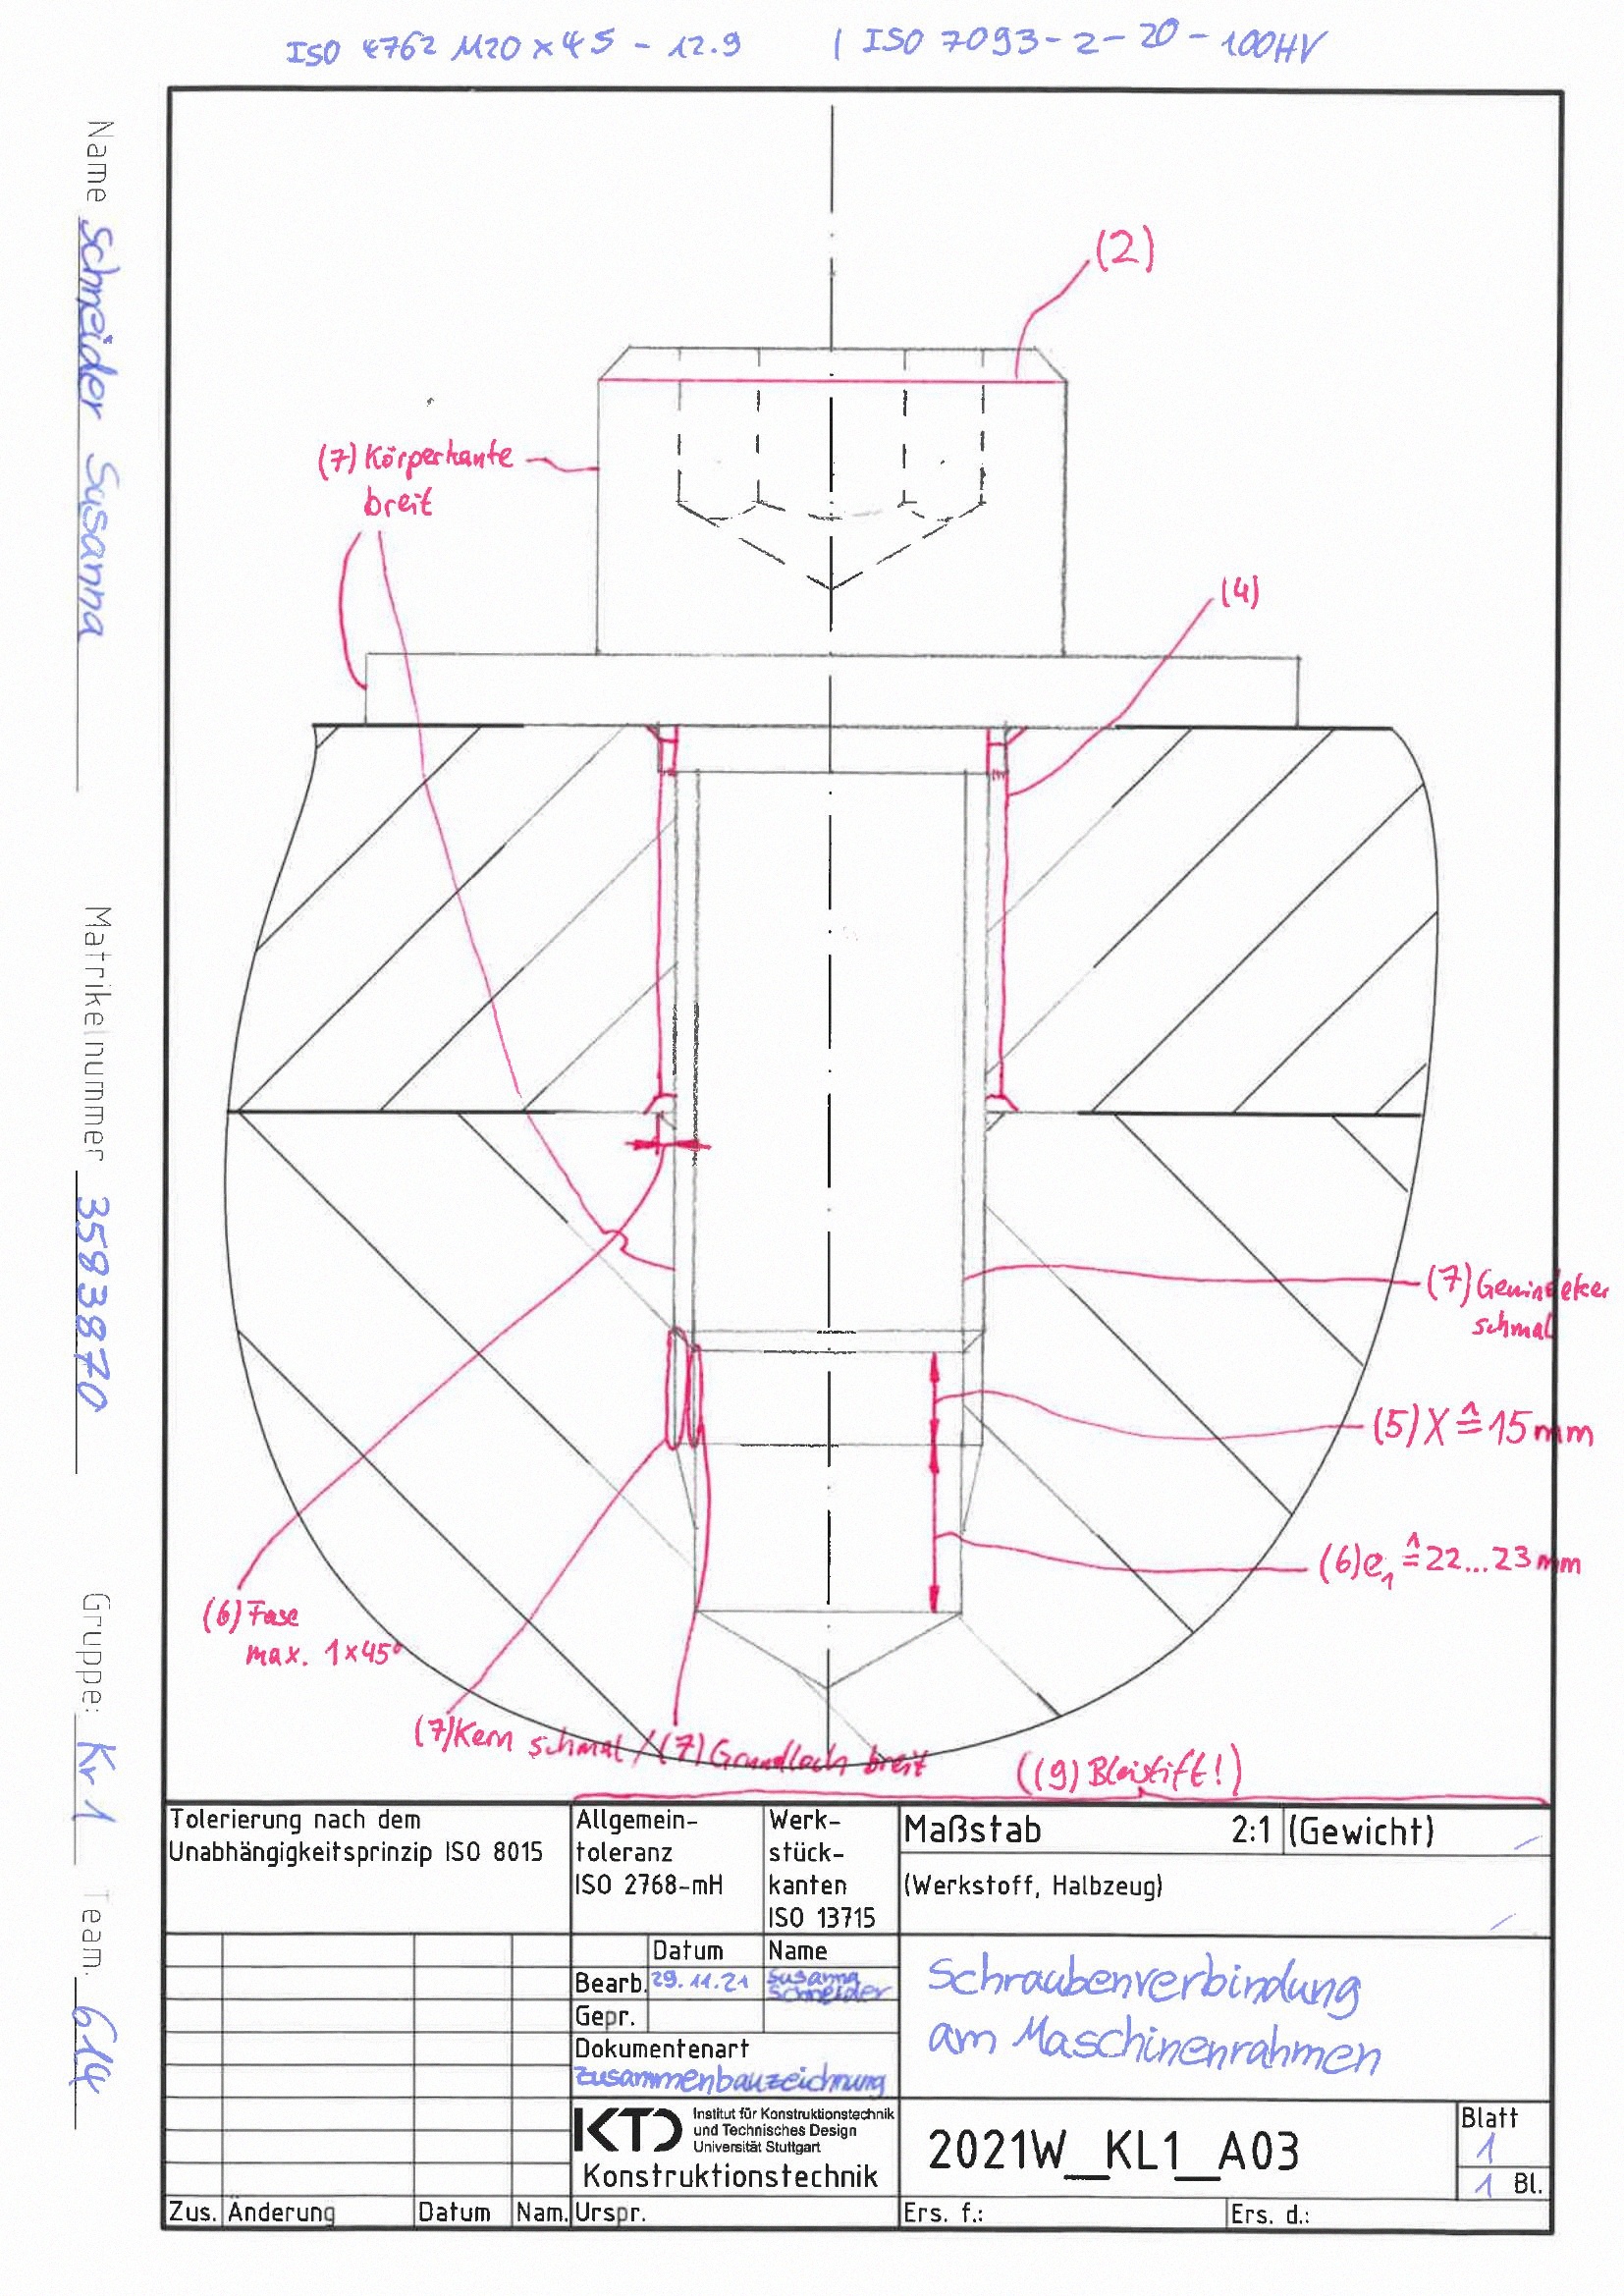 ISO 4762 M20 x 45 - 12.9 | ISO 7093-2-20-100HV
Name Schneider Susanna
Matrikelnummer 3583870
Gruppe: Kr 1
Team: 614
(2)
(7) Körperkante
breit
(4)
(7) Gewindeker
schmal
(5) X ≙ 15 mm
(6) e1 ≙ 22...23 mm
(6) Fase
max. 1x45°
(7) Kern schmal / (7) Grundloch breit
((9) Bleistift!)
Tolerierung nach dem
Unabhängigkeitsprinzip ISO 8015
Allgemein-
toleranz
ISO 2768-mH
Werk-
stück-
kanten
ISO 13715
Maßstab 2:1 (Gewicht) /
(Werkstoff, Halbzeug) /
Datum Name
Bearb. 29.11.21 Susanna
Schneider
Gepr.
Dokumentenart
Zusammenbauzeichnung
Schraubenverbindung
am Maschinenrahmen
KTD Institut für Konstruktionstechnik
und Technisches Design
Universität Stuttgart
Konstruktionstechnik
2021W_KL1_A03
Blatt
1
1 Bl.
Zus. Änderung Datum Nam. Urspr. Ers. f.: Ers. d.: